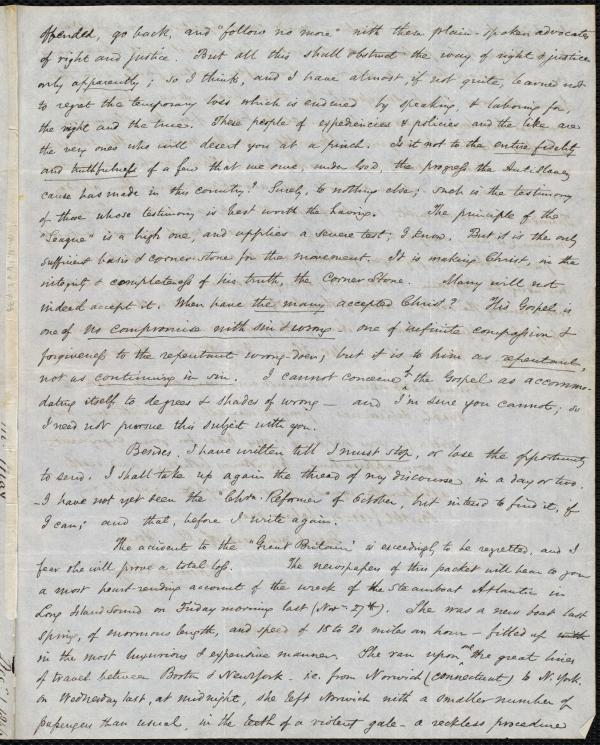 offended, go back, and "follow no more" with them plain-spoken advocates
of right and justice. But all this shall obstruct the way of right & justice
only apparently; so I think, and I have almost, if not quite, learned not
to regret the temporary loss which is endured by speaking, & laboring for,
the right and the true. These people of expediencies & policies and the like are
the very ones who will desert you at a pinch. Is it not to the entire fidelity
and truthfulness of a few that we owe, under God, the progress the Antislavery
cause has made in this country? Surely, to nothing else; such is the testimony
of those whose testimony is best worth the having. The principle of the
"League" is a high one, and applies a severe test, I know. But it is the only
sufficient basis & corner-stone for the movement. It is making Christ, in the
integrity & completeness of his truth, the Corner Stone. Many will not
indeed accept it. When have the many accepted Christ? His Gospel is
one of no compromise with sin & wrong – one of infinite compassion &
forgiveness to the repentant wrong-doer; but it is to him as repentant,
not as continuing in sin. I cannot conceive of the Gospel as accommo-
dating itself to degrees & shades of wrong – and I'm sure you cannot; so
I need not pursue this subject with you.
Besides, I have written till I must stop, or lose the opportunity
to send. I shall take up again the thread of my discourse in a day or two.
I have not yet seen the "Chrn. Reformer" of October, but intend to find it, if
I can; and that, before I write again.
The accident to the "Great Britain" is exceedingly to be regretted, and I
fear she will prove a total loss. The newspapers of this packet will bear to you
a most heart-rending account of the wreck of the Steamboat Atlantic in
Long Island Sound on Friday morning last (Nov. 27th). She was a new boat last
Spring, of enormous length, and speed of 18 to 20 miles an hour – fitted up
in the most luxurious & expensive manner. She ran upon one of the great lines
of travel between Boston & New York. i.e. from Norwich (Connecticut) to N. York.
on Wednesday last, at midnight, she left Norwich with a smaller number of
passengers than usual, in the teeth of a violent gale – a reckless procedure